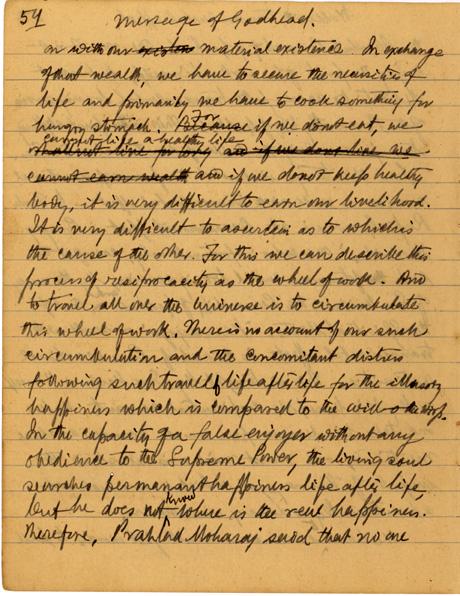 59
Message of Godhead.
on with our existen material existence. In exchange
of that wealth, we have to secure the necessities of
life and primarily we have to cook something for
hungry stomach. Because For if we donot eat, we
cannot live a healthy life
shall not live for long and if we dono live we
cannot earn wealth and if we donot keep healthy
body, it is very difficult to earn our livelihood.
It is very difficult to ascertain as to which is
the cause of the other. For this we can describe this
process of resiprocacity as the wheel of work. And
to travel all over the Universe is to circumbulate
this wheel of work. There is no account of our such
circumbulation and the concomitant distress
following such travell of life after life for the illusory
happiness which is compared to the will-o-the wisp.
In the capacity of a false enjoyer without any
obedience to the Supreme Power, the living soul
searches permanant happiness life after life,
but he does not know where is the real happiness.
Therefore, Prahlad Moharaj said that no one